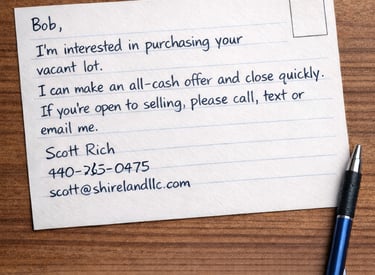 Bob,
I'm interested in purchasing your
vacant lot.
I can make an all-cash offer and close quickly.
If you're open to selling, please call, text or
email me.
Scott Rich
440-265-0475
scott@shirelandllc.com